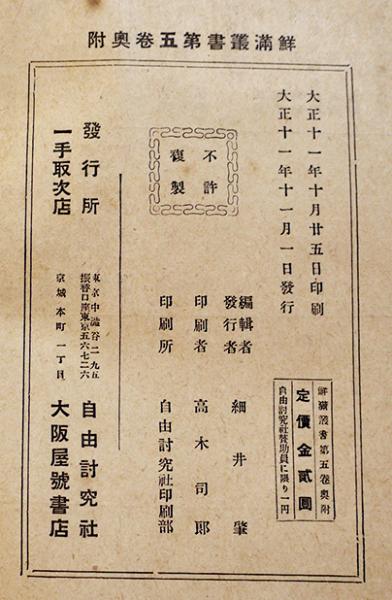 鮮滿叢書第五卷奧附
大正十一年十月廿五日印刷
大正十一年十一月一日發行
鮮滿叢書第五卷奧附
定價金貳圓
自由討究社賛助員に限り一円
不許
複製
編輯者
發行者
細井肇
印刷者
高木司郎
印刷所
自由討究社印刷部
發行所
東京中澁谷二九五
振替口座東京五六七二六
自由討究社
一手取次店
京城本町一丁目
大阪屋號書店